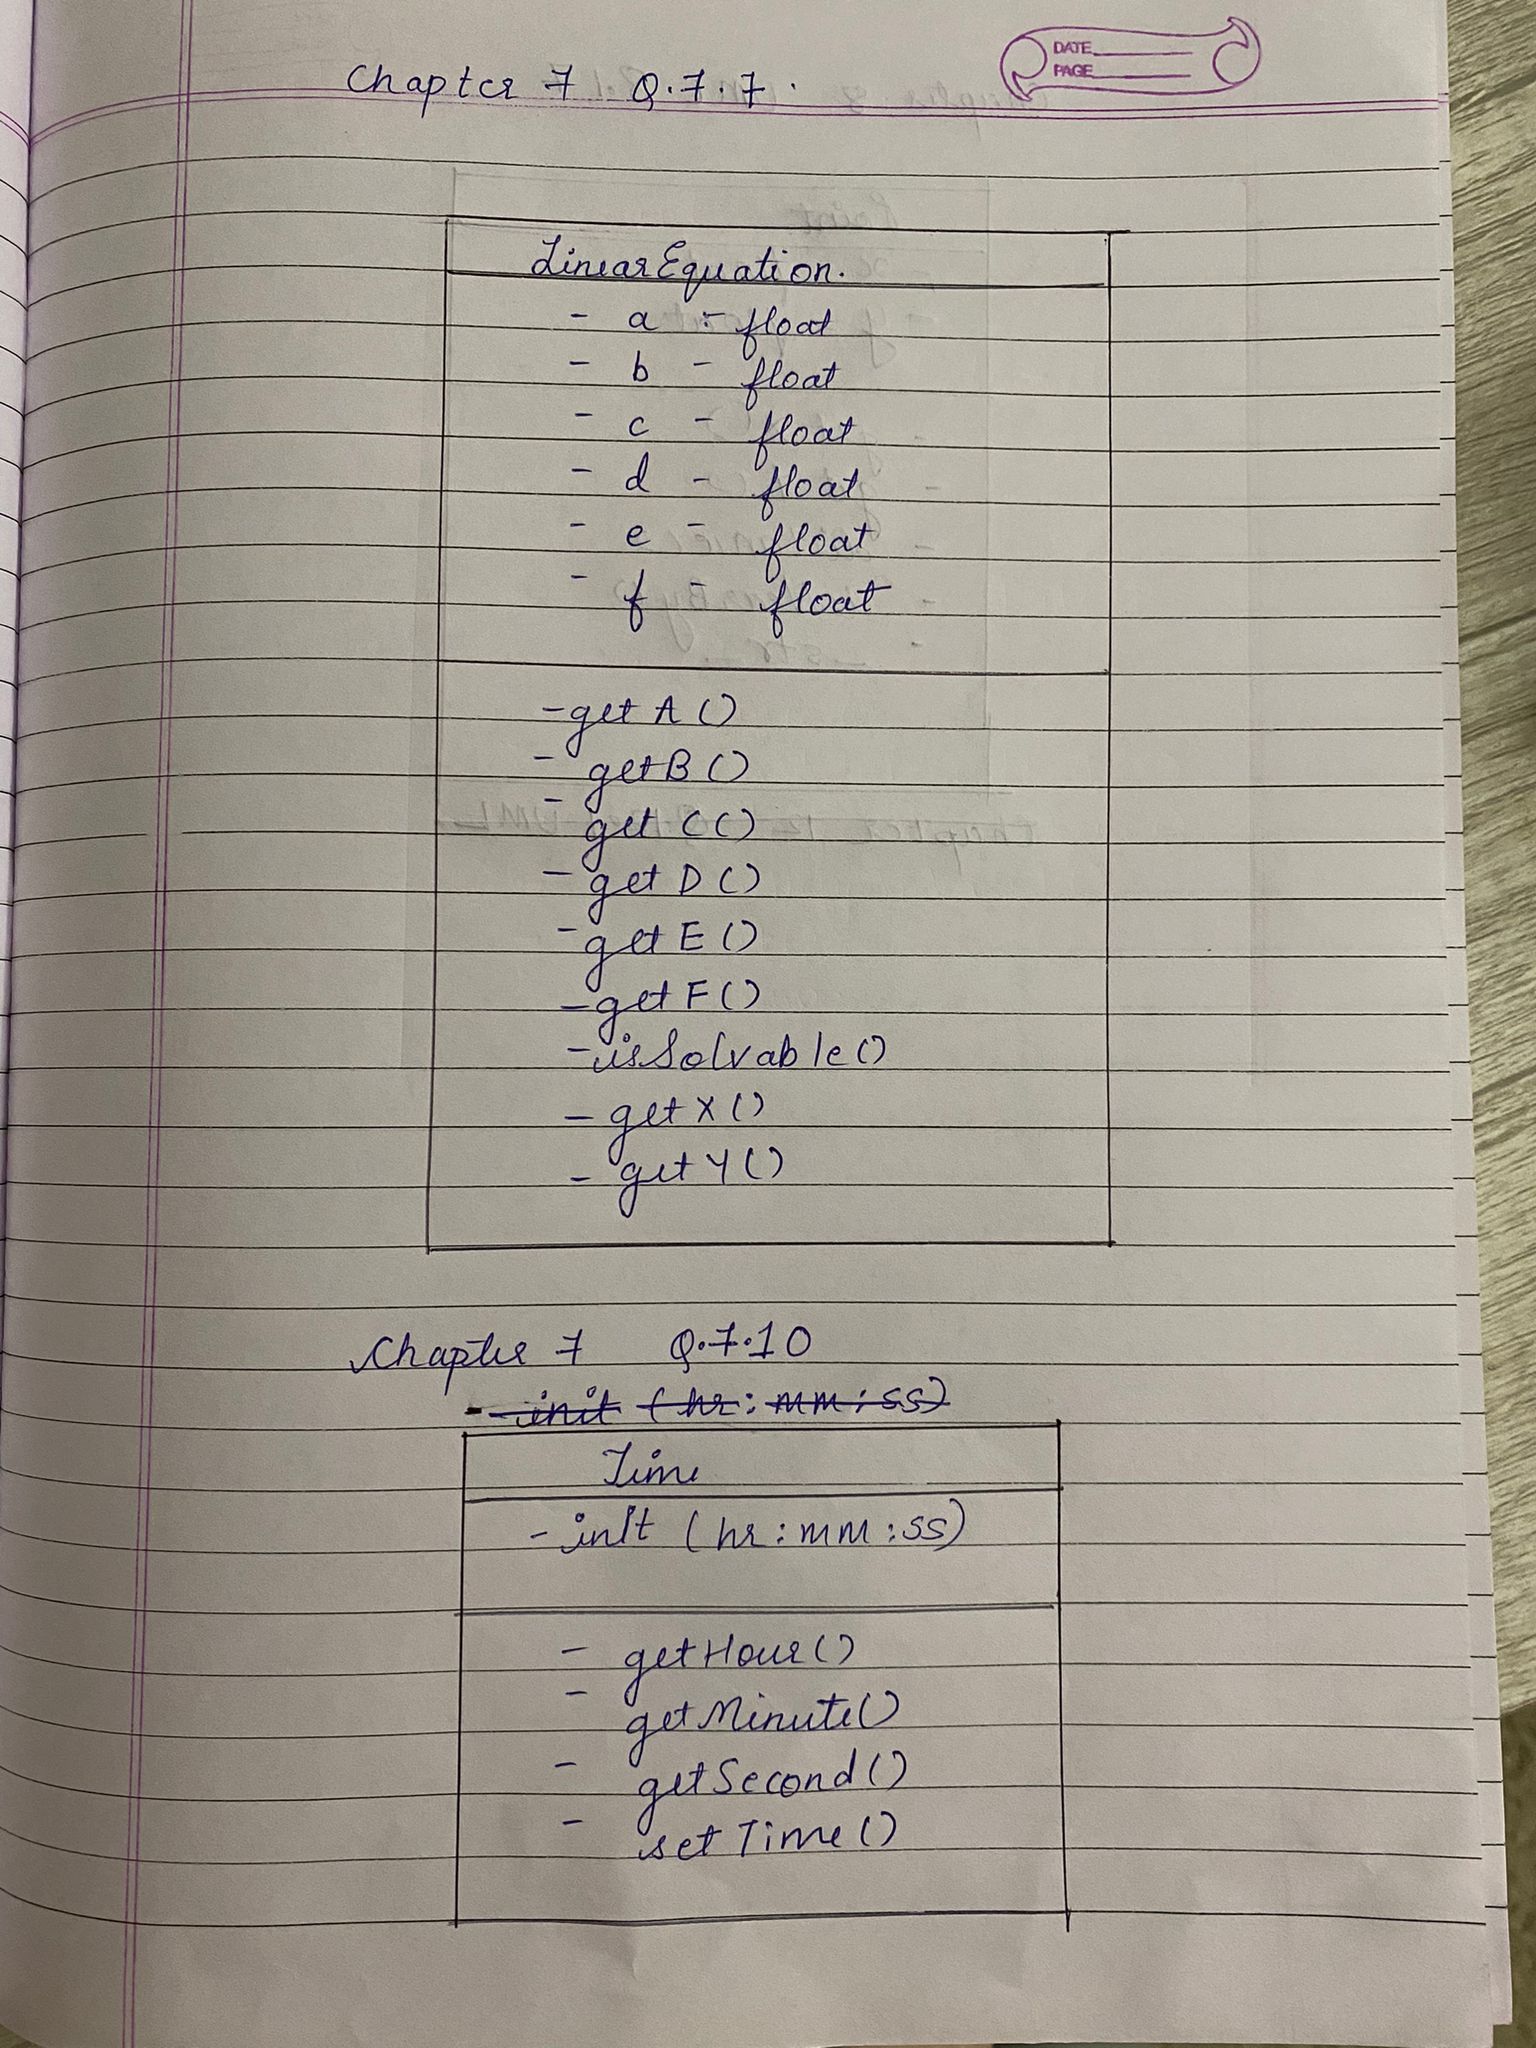 DATE
PAGE
Chapter 7 Q.7.7.
LinearEquation.
- a :- float
- b - float
- c - float
- d - float
- e - float
- f - float
- getA()
- getB()
- getC()
- getD()
- getE()
- getF()
- isSolvable()
- getX()
- getY()
Chapter 7 Q.7.10
- init (hr: mm: ss)
Time
- init (hr: mm: ss)
- getHour()
- getMinute()
- getSecond()
- setTime()